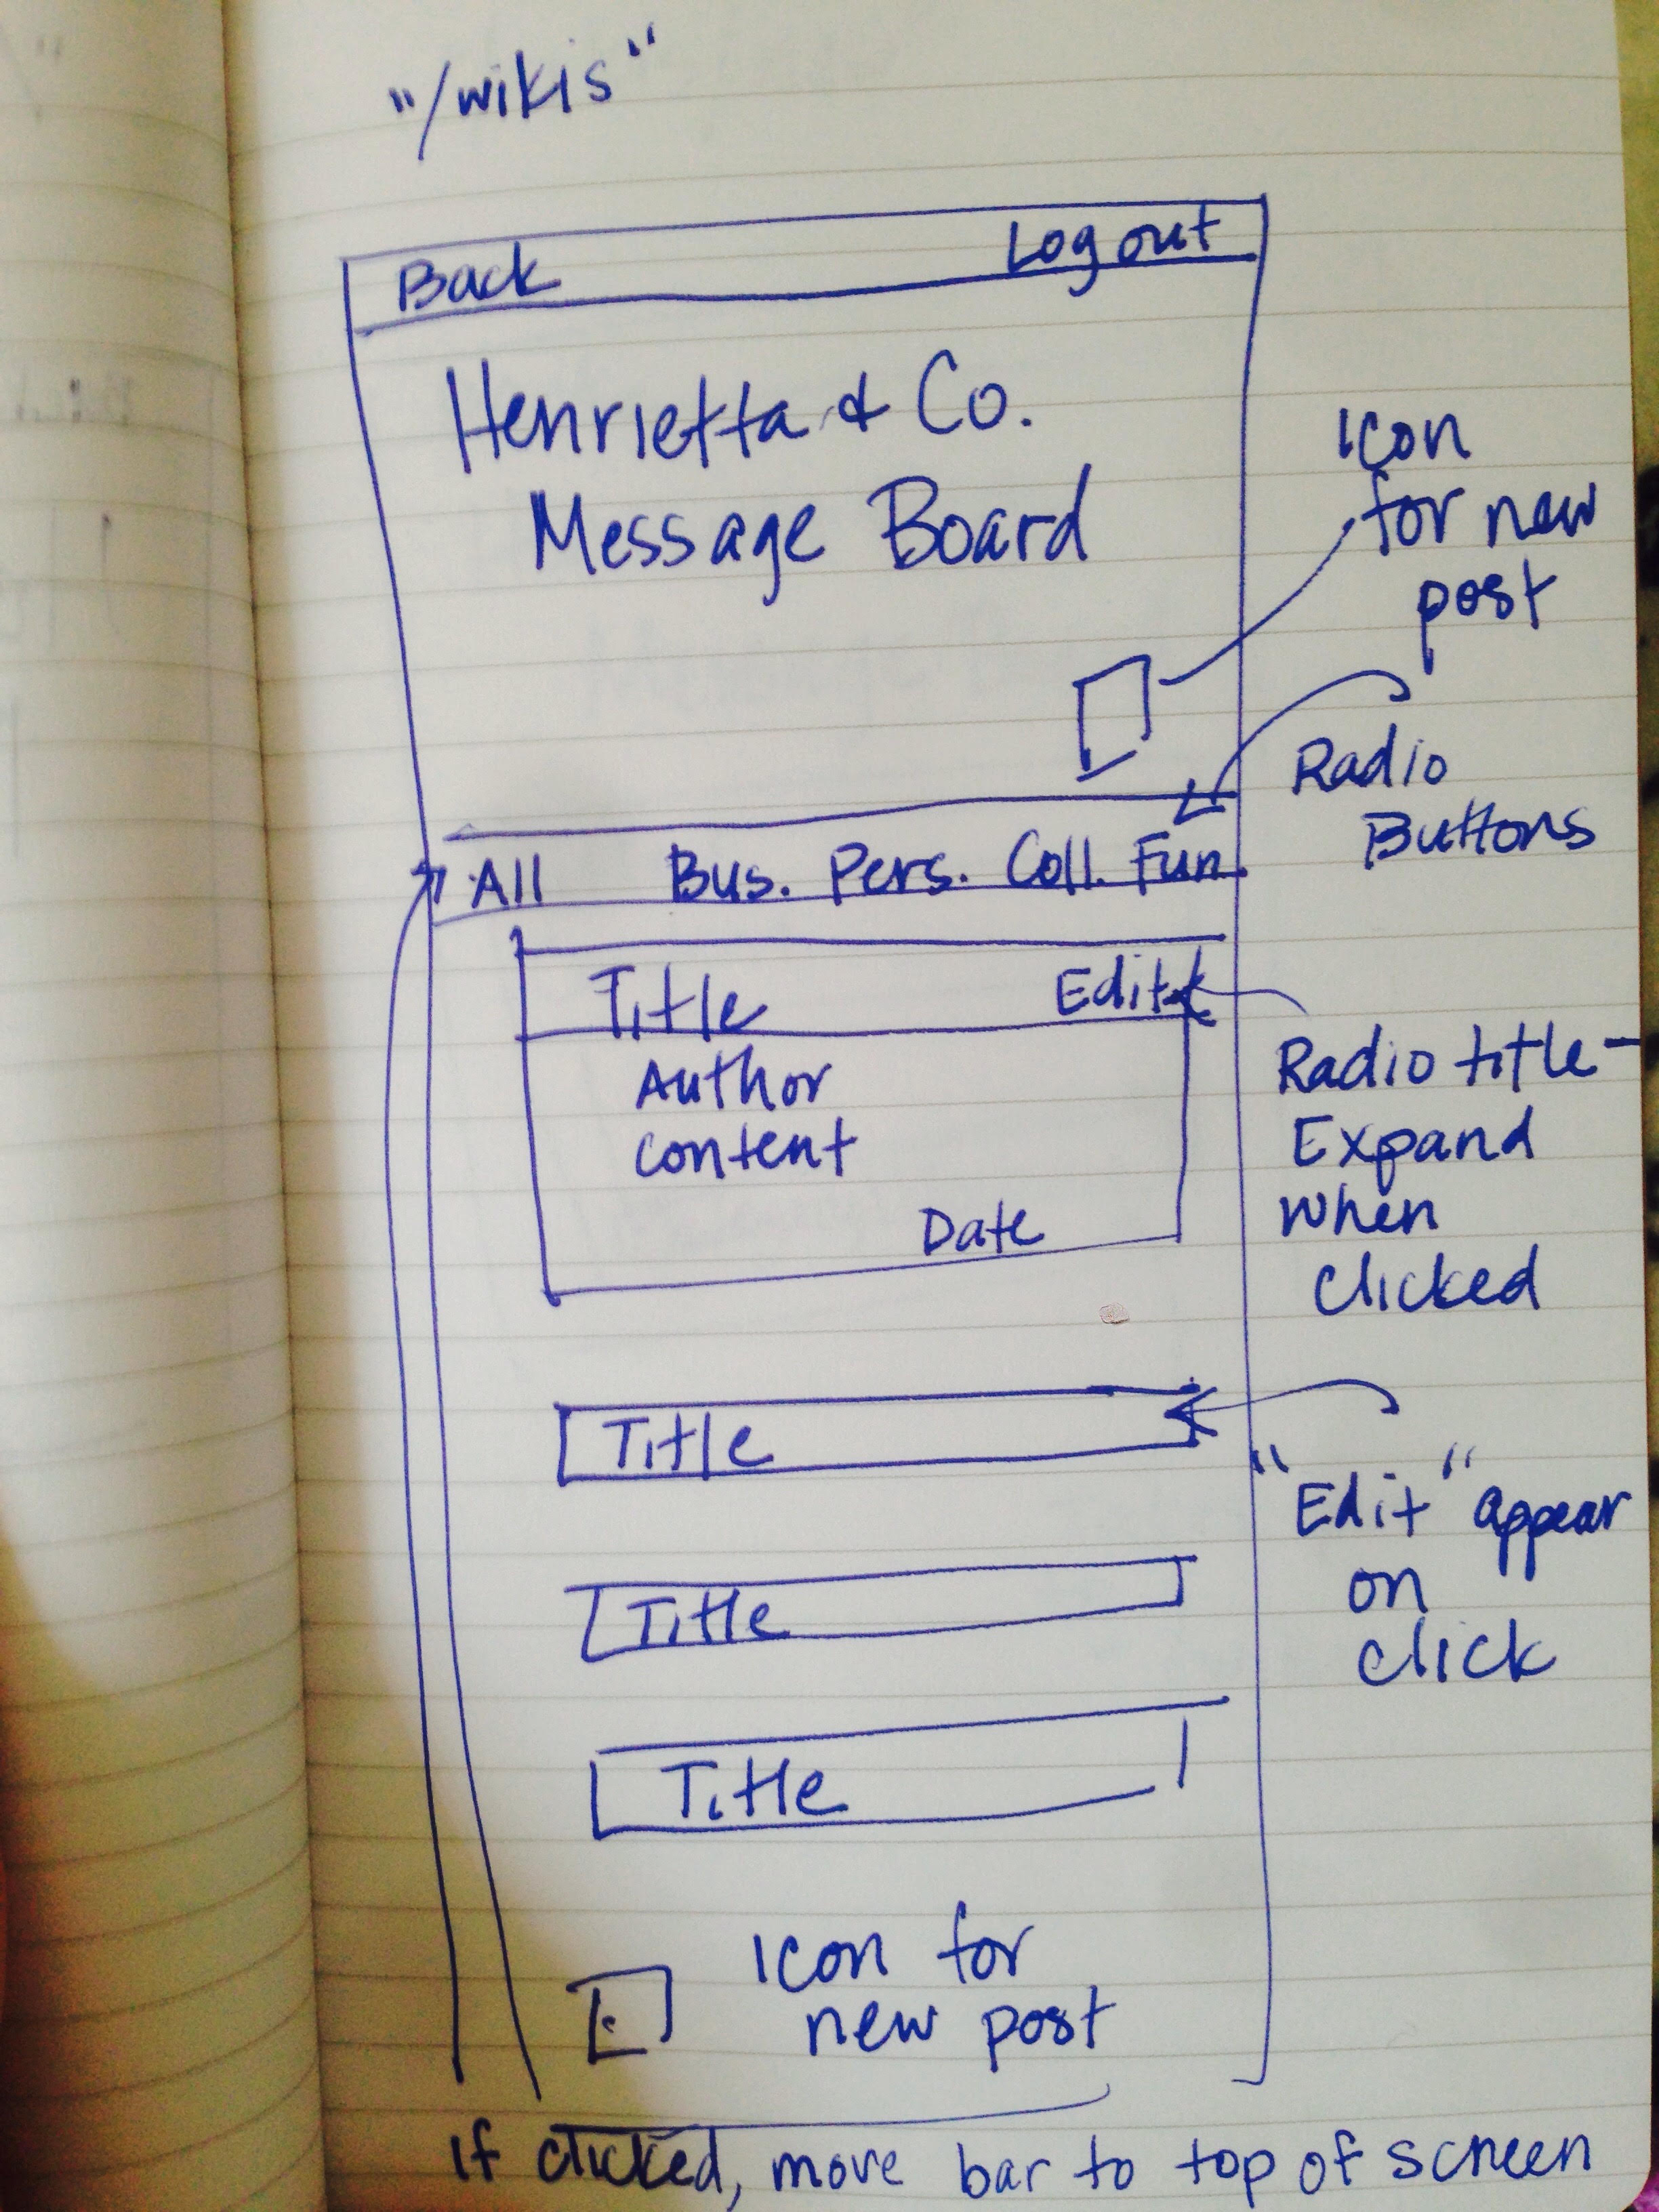 "/wikis"
Back Log out
Henrietta & Co.
Message Board
Icon
for new
post
Radio
Buttons
All Bus. Pers. Coll. Fun.
Title Edit
Author
content
Date
Radio title -
Expand
when
clicked
Title
"Edit" appear
on
click
Title
Title
Icon for
new post
If clicked, move bar to top of screen